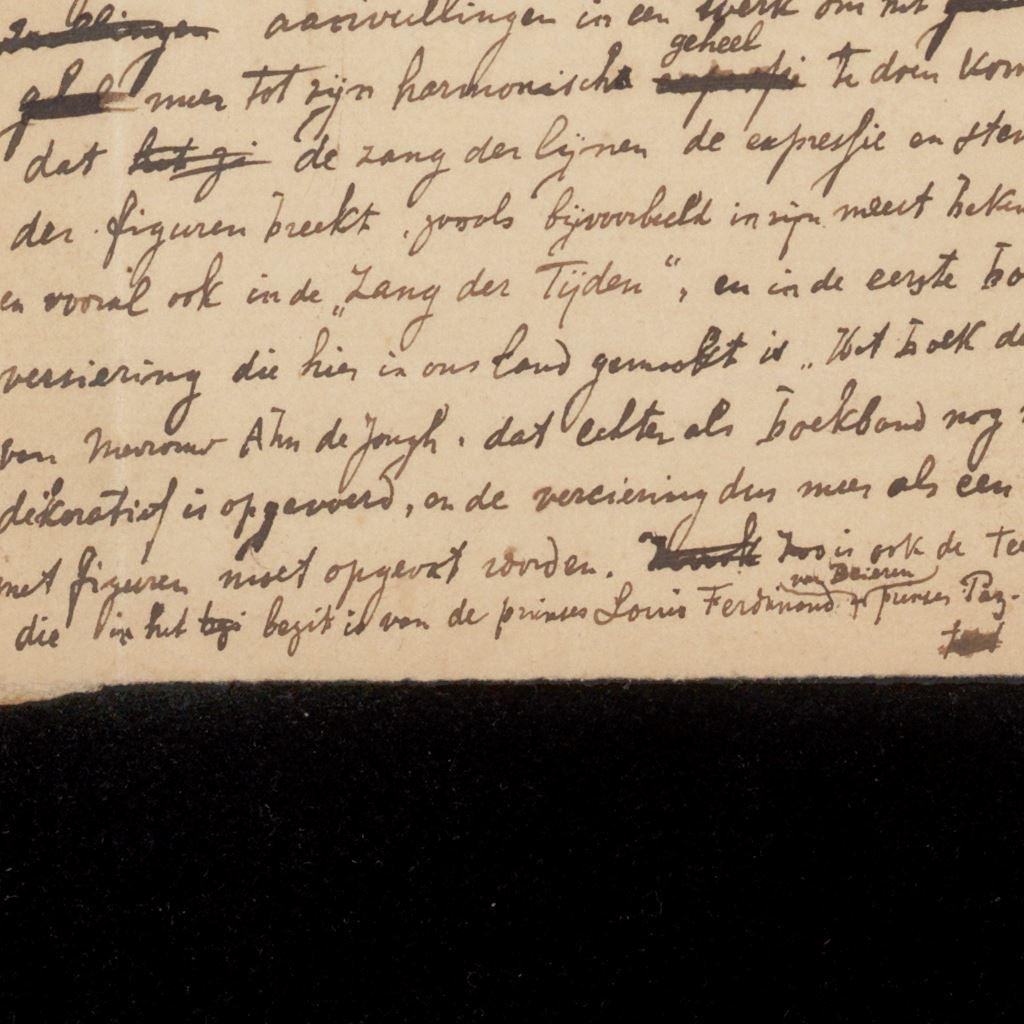 aanvullingen in een werk om het
geheel
meer tot zijn harmonisch te doen kom
dat de zang der lijnen de expressie en stem
der figuren breekt, zooals bijvoorbeeld in zijn meest beken
en vooral ook in de „Zang der Tijden", en in de eerste bo
versiering die hier in ons land gemaakt is „Het boek de
van Mevrouw de Jongh, dat echter als boekband nog
dekoratief is opgevoerd, en de verciering dus meer als een
met figuren moet opgevat worden. Zoo is ook de Tee
van Beieren
die in het bezit is van de prinses Louis Ferdinand prinses Paz.